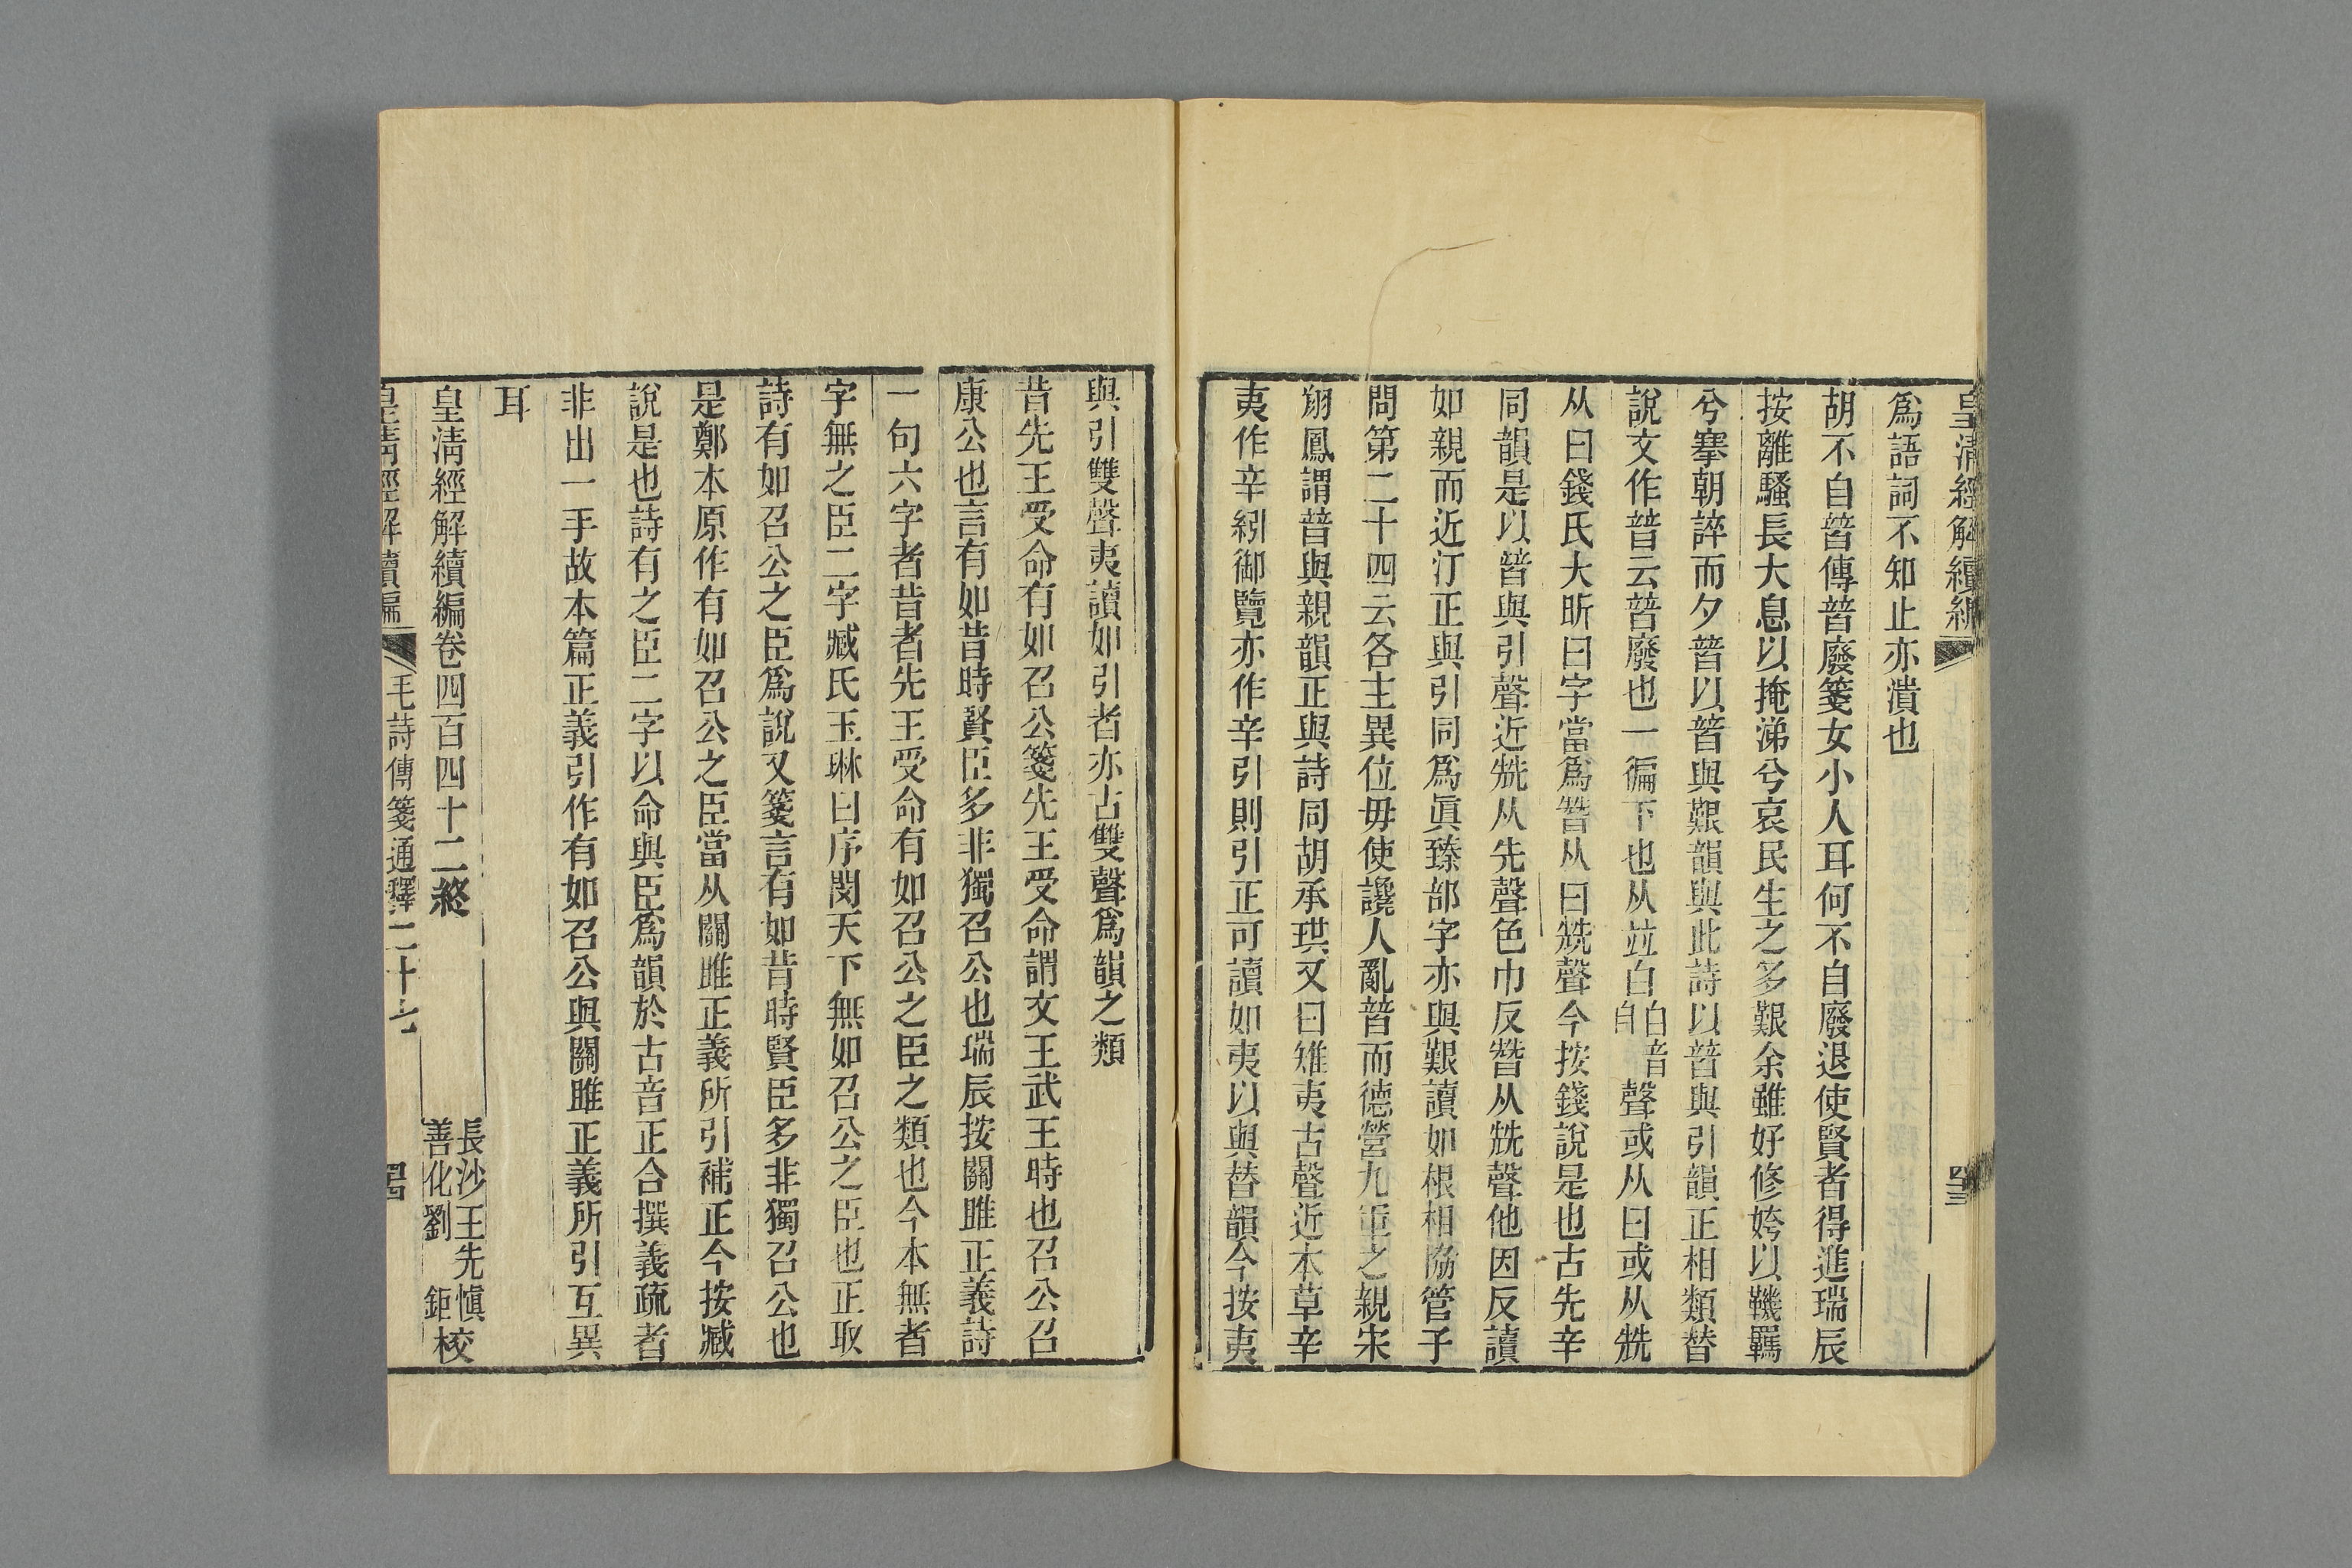 皇清經解續編
爲語詞不知止亦潰也
胡不自朁傳朁廢箋女小人耳何不自廢退使賢者得進瑞辰
按離騷長大息以掩涕兮哀民生之多艱余雖好修姱以鞿羈
兮搴朝誶而夕朁以朁與艱韻與此詩以朁與引韻正相類替
說文作朁云朁廢也一徧下也从竝白白音自聲或从曰或从兟
从曰錢氏大昕曰字當爲朁从曰兟聲今按錢說是也古先辛
同韻是以朁與引聲近兟从先聲色巾反朁从兟聲他因反讀
如親而近汀正與引同爲眞臻部字亦與艱讀如根相協管子
問第二十四云各主異位毋使讒人亂朁而德營九軍之親宋
翔鳳謂朁與親韻正與詩同胡承珙又曰雉夷古聲近本草辛
夷作辛紖御覽亦作辛引則引正可讀如夷以與替韻今按夷
與引雙聲夷讀如引者亦古雙聲爲韻之類
昔先王受命有如召公箋先王受命謂文王武王時也召公召
康公也言有如昔時賢臣多非獨召公也瑞辰按關雎正義詩
一句六字者昔者先王受命有如召公之臣之類也今本無者
字無之臣二字臧氏玉琳曰序閔天下無如召公之臣也正取
詩有如召公之臣爲說又箋言有如昔時賢臣多非獨召公也
是鄭本原作有如召公之臣當从關雎正義所引補正今按臧
說是也詩有之臣二字以命與臣爲韻於古音正合撰義疏者
非出一手故本篇正義引作有如召公與關雎正義所引互異
耳
皇清經解續編卷四百四十二終
長沙王先愼
善化劉鉅校
皇清經解續編 毛詩傳箋通釋二十七